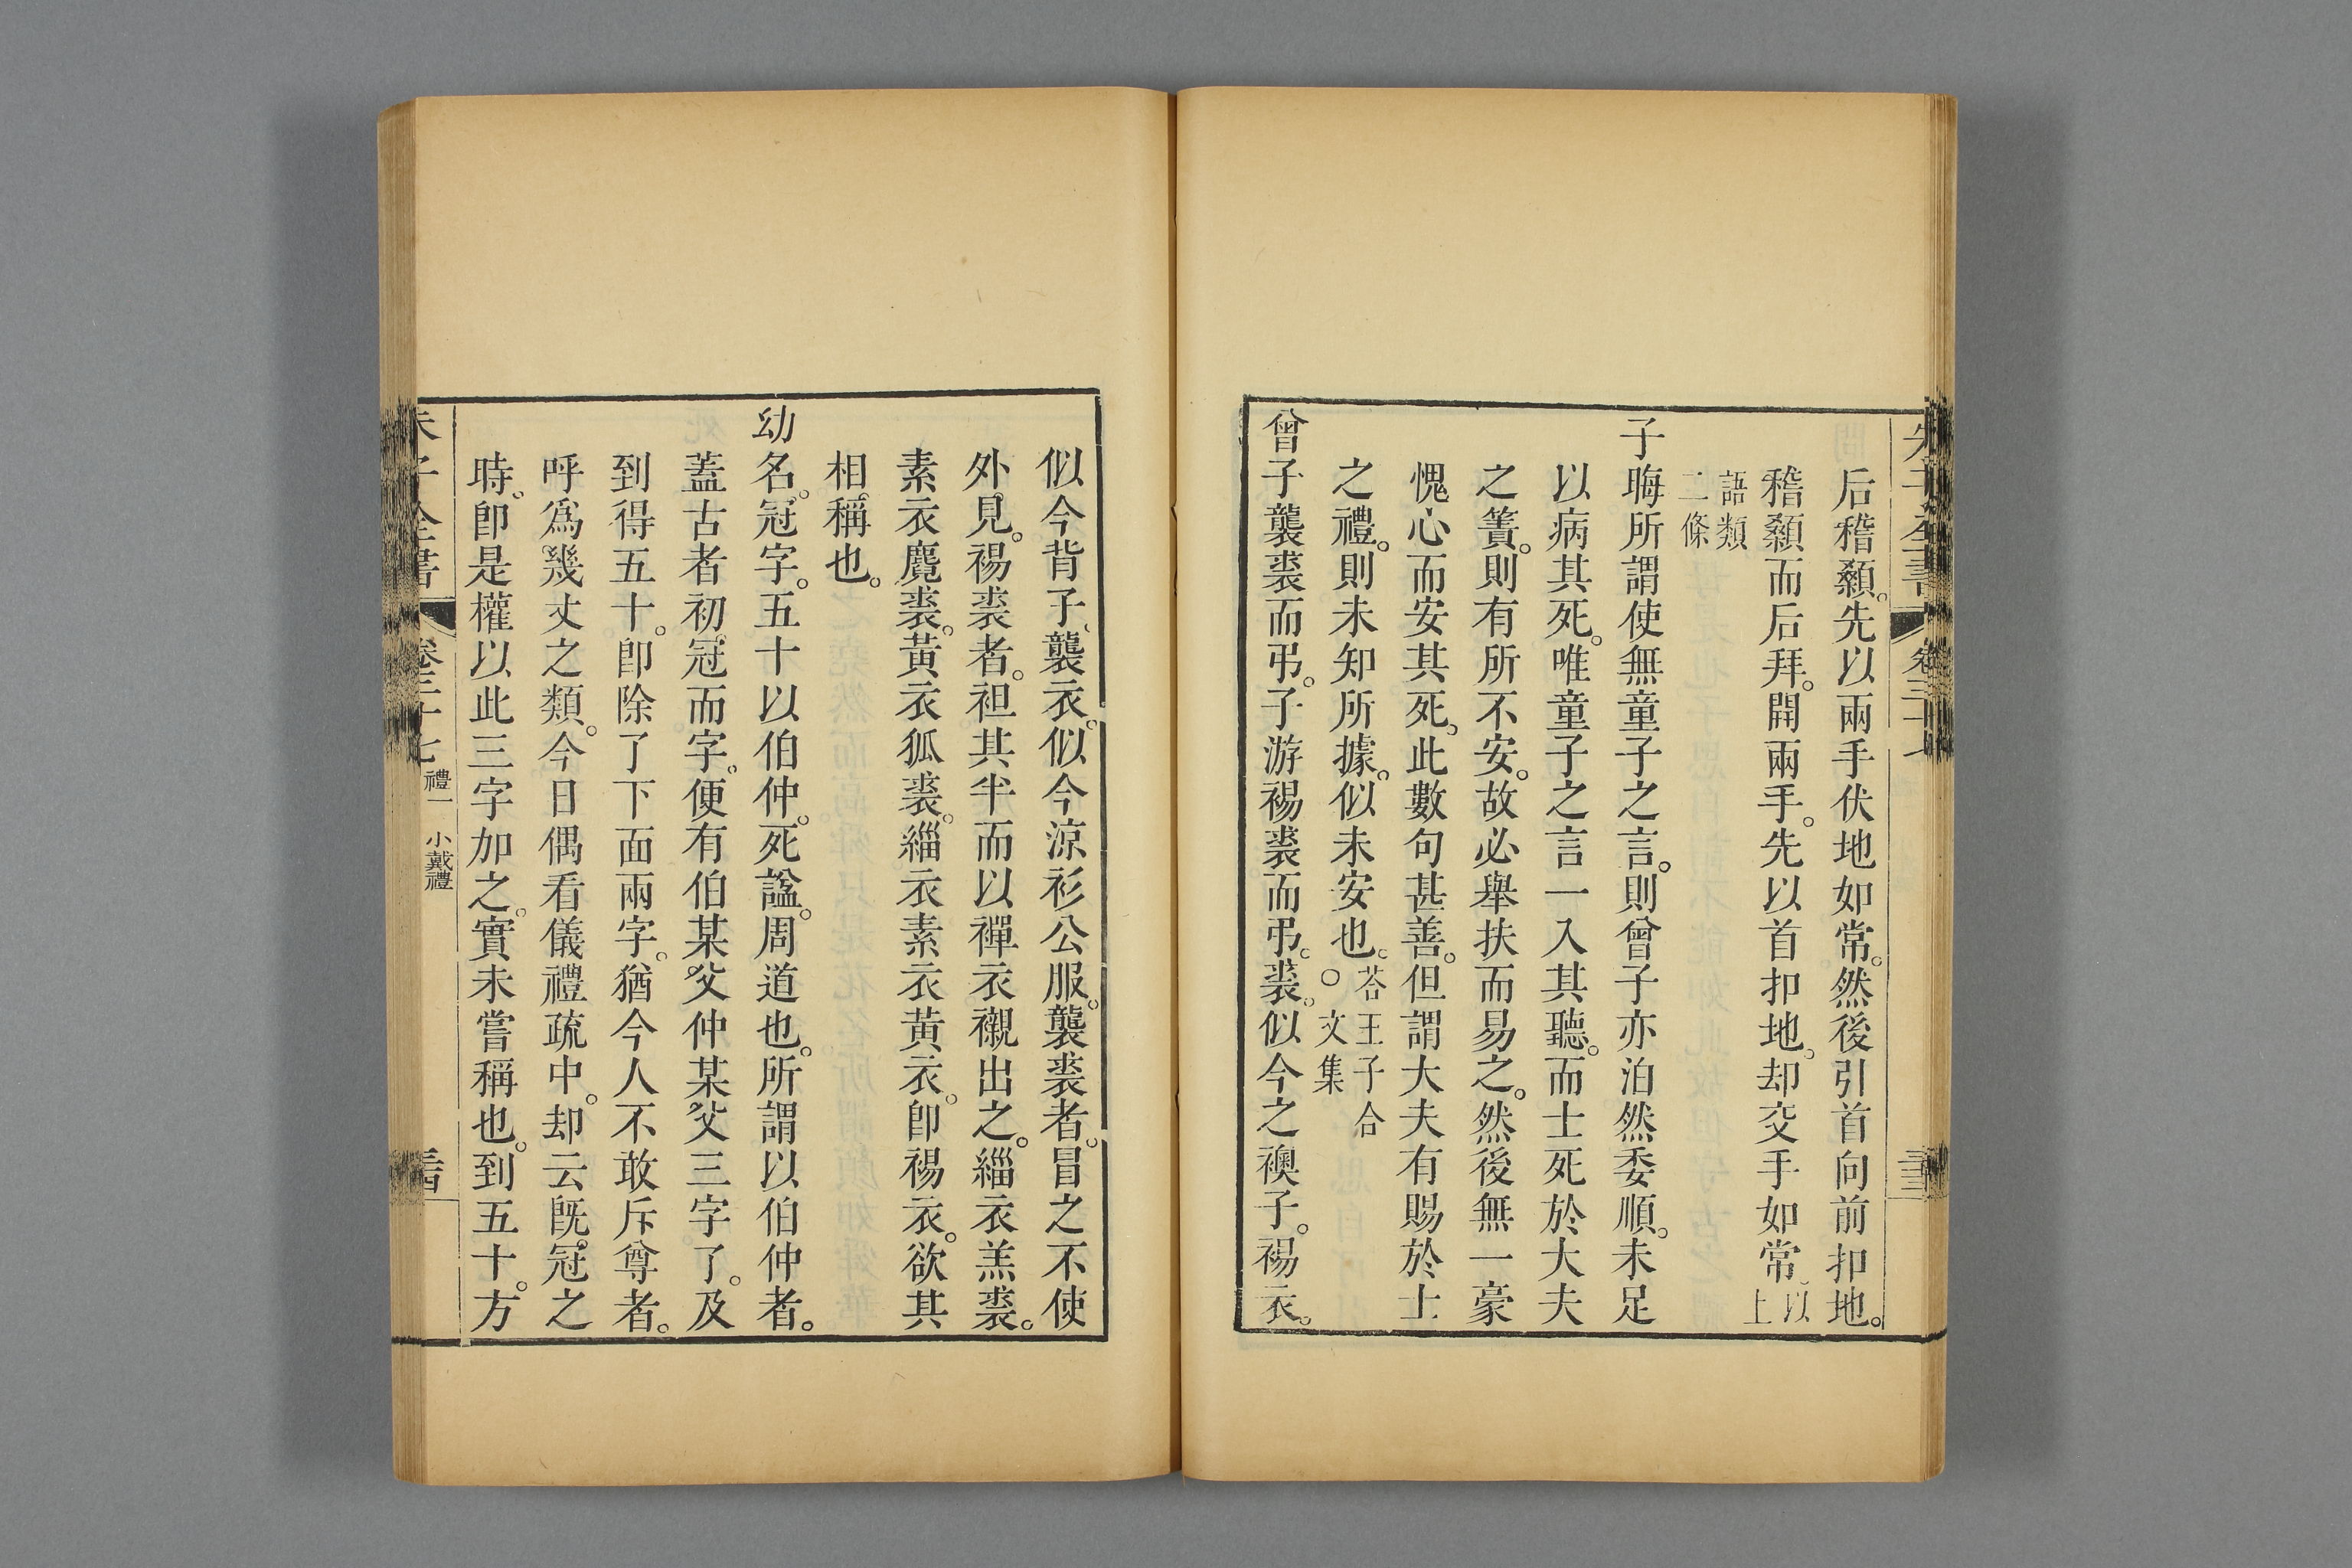 后稽顙。先以兩手伏地如常。然後引首向前扣地。
稽顙而后拜。開兩手。先以首扣地。却交手如常。以上
語類二條
子晦所謂使無童子之言。則曾子亦泊然委順。未足
以病其死。唯童子之言一入其聽。而士死於大夫
之簀。則有所不安。故必舉扶而易之。然後無一豪
愧心而安其死。此數句甚善。但謂大夫有賜於士
之禮。則未知所據。似未安也。○答王子合文集
曾子襲裘而弔。子游裼裘而弔。裘。似今之襖子。裼衣。
似今背子、襲衣。似今涼衫公服。襲裘者。冒之不使
外見。裼裘者。袒其半而以禪衣襯出之。緇衣羔裘。
素衣麑裘。黃衣狐裘。緇衣素衣黃衣。卽裼衣。欲其
相稱也。
幼名。冠字。五十以伯仲。死諡。周道也。所謂以伯仲者。
蓋古者初冠而字。便有伯某父仲某父三字了。及
到得五十。卽除了下面兩字。猶今人不敢斥尊者。
呼爲幾丈之類。今日偶看儀禮疏中。却云旣冠之
時。卽是權以此三字加之。實未嘗稱也。到五十。方
朱子全書 卷三十七 禮一 小戴禮